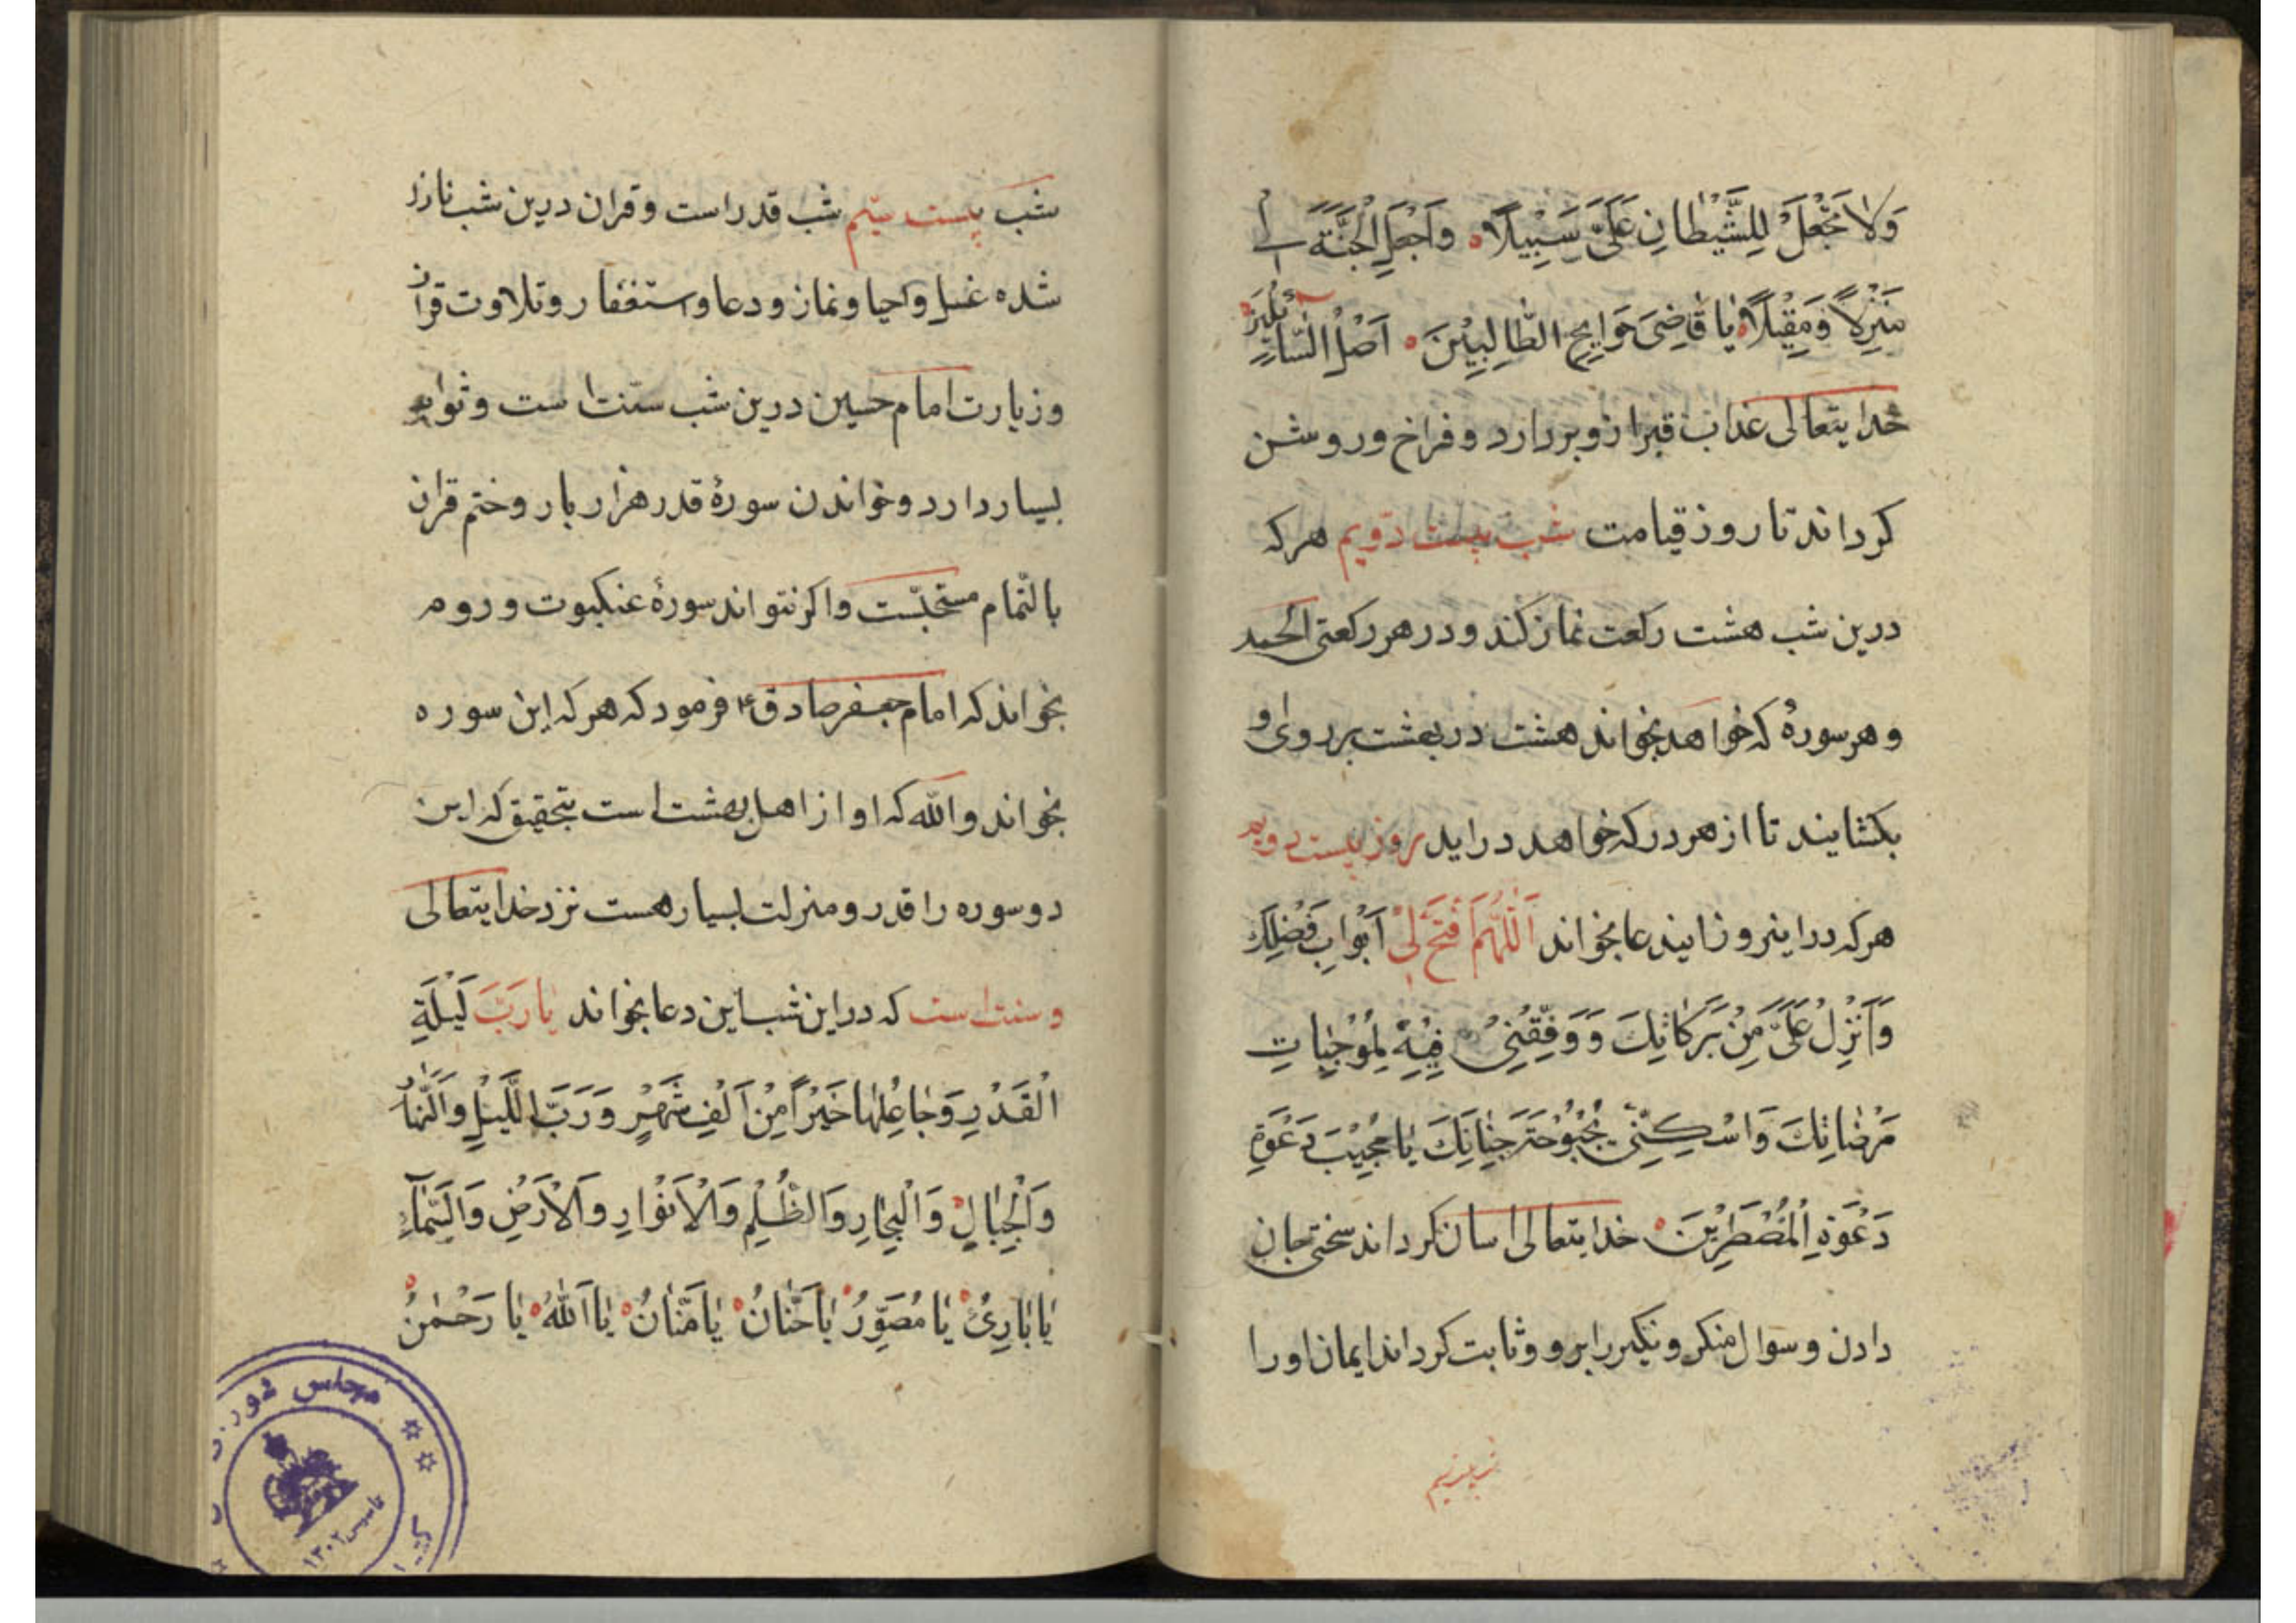 وَلَا تَجْعَلْ لِلشَّيْطَانِ عَلَىَّ سَبِيْلًا وَاجْعَلِ الْجَنَّةَ لِى
مَنْزِلًا وَمَقِيْلًا يَا قَاضِىَ حَوَايِجِ الطَّالِبِيْنَ اَصْلُ النُّسَّا
خدا يتعالى عذاب قبر ازو بردارد و فراخ و روشن
كرداند تا روز قيامت شب بيست دويم هركه
درين شب هشت ركعت نماز كند و در هر ركعتى الحمد
و هر سورهٔ كه خواهد بخواند هشت در بهشت بر روى او
بكشايند تا از هر در كه خواهد درايد روز بيست دويم
هركه دراينروز اينـدعا بخواند اَللّٰهُمَّ فْتَحْ لِىْ اَبْوابَ فَضْلِكَ
وَاَنْزِلْ عَلَىَّ مِنْ بَرَكَاتِكَ وَ وَفِّقْنِىْ فِيْهِ لِمُوْجِبَاتِ
مَرْضَاتِكَ وَاسْكِنِّىْ بُحْبُوْحَةَ جَنَانِكَ يَا مُجِيْبَ دَعْوَةِ
دَعْوَةِ الْمُضْطَرِّيْنَ خدا يتعالى اسان كرداند سختى جان
دادن و سوال منكر و نكير را برو و ثابت كرداند ايمان او را
شب بيست سيم
شب بيست سيم شب قدر است و قران درين شب نازل
شده غسل و احيا و نماز و دعا و استغفار و تلاوت قران
و زيارت امام حسين درين شب سنت است و ثواب
بسيار دارد و خواندن سورهٔ قدر هزار بار و ختم قران
بالتّمام مستحبّست و اكر نتواند سورهٔ عنكبوت و روم
بخواند كه امام جعفر صادق ع فرمود كه هر كه اين سوره
بخواند والله كه او از اهل بهشت است بتحقيق كه اين
دو سوره را قدر و منزلت بسيار هست نزد خدا يتعالى
و سنت است كه در اين شب اين دعا بخواند يَا رَبَّ لَيْلَةِ
الْقَدْرِ وَجَاعِلَهَا خَيْرًا مِنْ اَلْفِ شَهْرٍ وَ رَبَّ اللَّيْلِ وَالنَّهَارِ
وَالْجِبَالِ وَالْبِحَارِ وَالظُّلَمِ وَالْاَنْوَارِ وَالْاَرْضِ وَالسَّمَآءِ
يَا بَارِئُ يَا مُصَوِّرُ يَا حَنَّانُ يَا مَنَّانُ يَا اَللّٰهُ يَا رَحْمٰنُ
مجلس شور
تاسيس ١٣٠٢